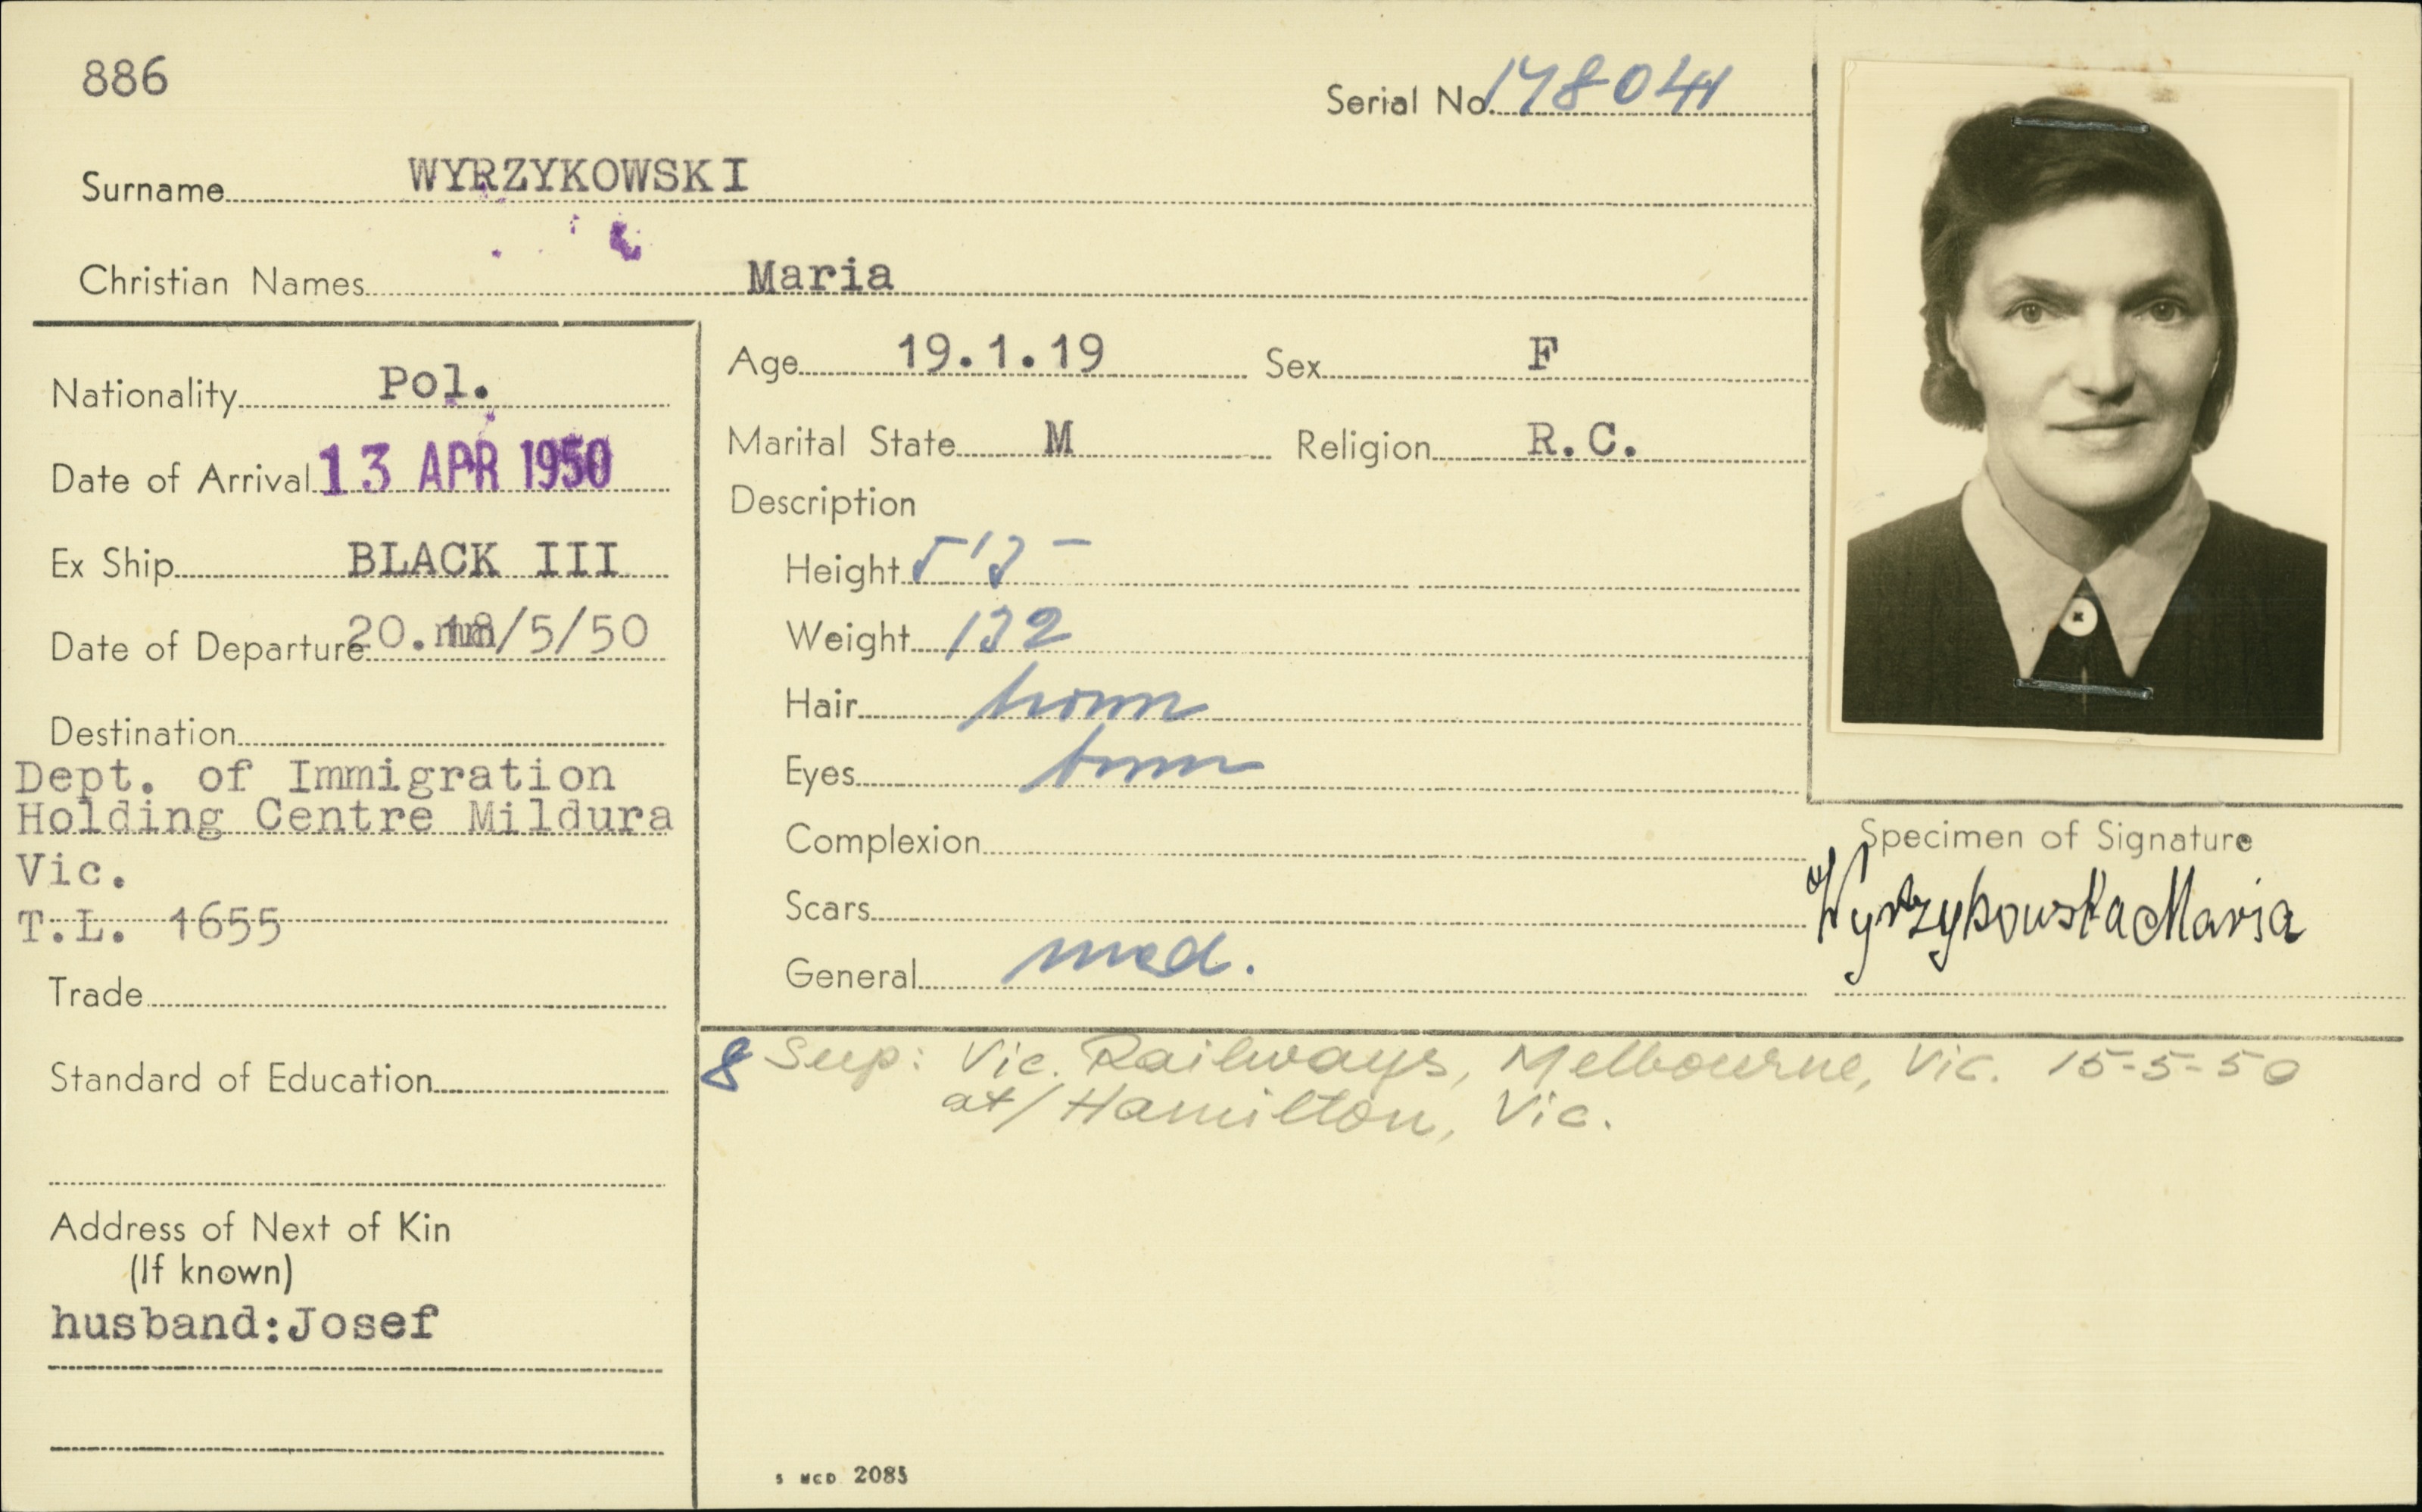 886
Serial No. 178041
Surname WYRZYKOWSKI
Christian Names Maria
Nationality Pol.
Date of Arrival 13 APR 1950
Ex Ship BLACK III
Date of Departure 20. /5/50
Destination
Dept. of Immigration
Holding Centre Mildura
Vic.
T.L. 1655
Trade
Standard of Education
Address of Next of Kin
(If known)
husband:Josef
Age 19.1.19 Sex F
Marital State M Religion R.C.
Description
Height 5'5"
Weight 132
Hair brown
Eyes brown
Complexion
Scars
General med.
Specimen of Signature
Wyrzykowska Maria
8 Sup: Vic. Railways, Melbourne, Vic. 15-5-50
at/Hamilton, Vic.
2085